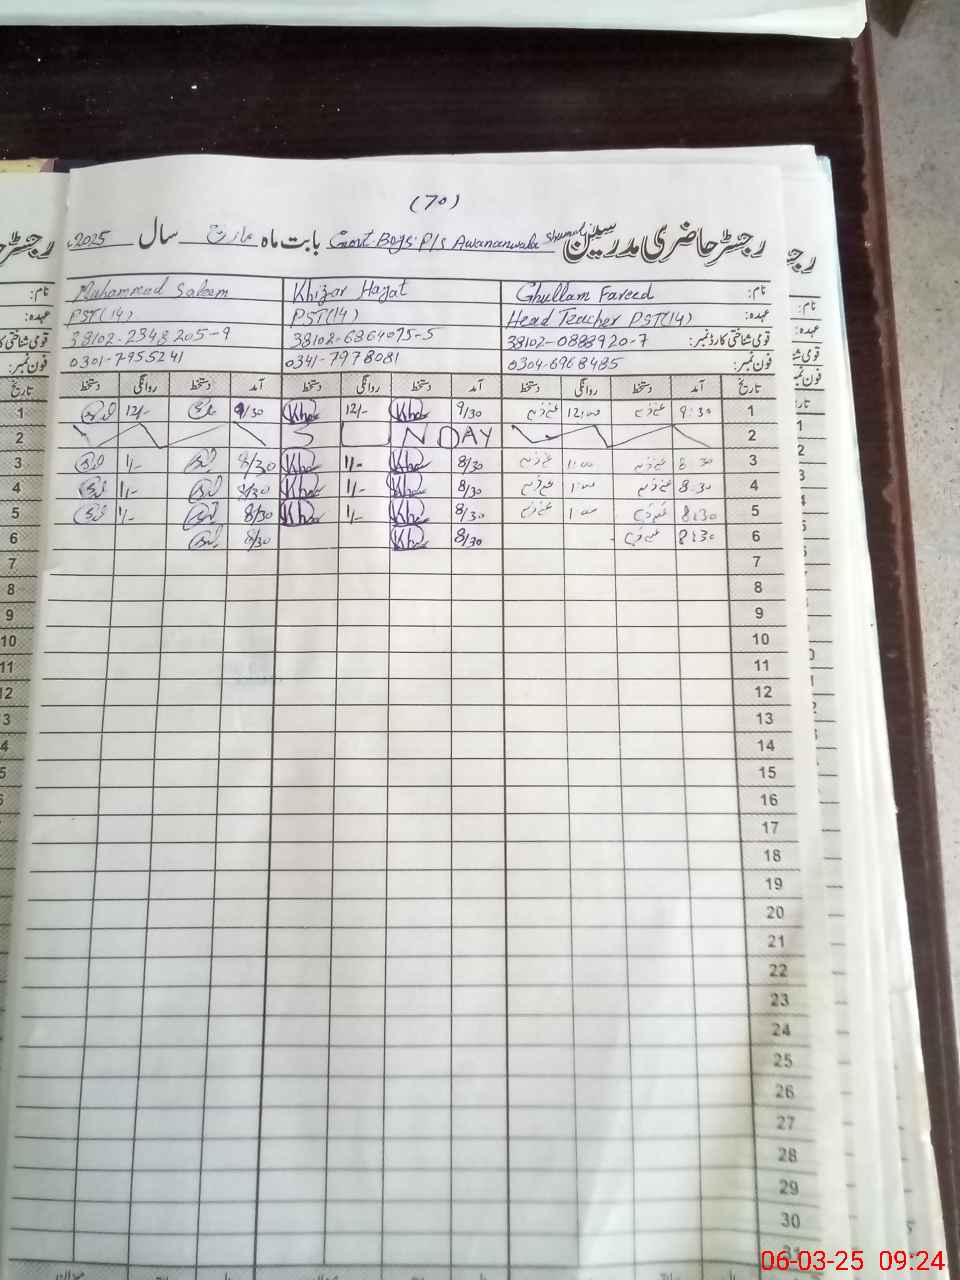 (70)
رجسٹر حاضری مدرسین Govt. Boys P/S Awananwala Shumali بابت ماہ مارچ سال 2025
نام: Ghullam Fareed Khizar Hayat Muhammad Saleem
عہدہ: Head Teacher PST(14) PST(14) PST(14)
قومی شناختی کارڈ نمبر: 38102-0888920-7 38102-6864075-5 38102-2348205-9
فون نمبر: 0304-6968485 0341-7978081 0301-7955241
تاریخ آمد دستخط روانگی دستخط آمد دستخط روانگی دستخط آمد دستخط روانگی دستخط
1 9:30 12:00 9/30 Khizar 12/- Khizar 9/30 12/-
2 SUNDAY
3 8:30 1:00 8/30 Khizar 1/- Khizar 8/30 1/-
4 8:30 1:00 8/30 Khizar 1/- Khizar 8/30 1/-
5 8:30 1:00 8/30 Khizar 1/- Khizar 8/30 1/-
6 8:30 8/30 Khizar 8/30
7
8
9
10
11
12
13
14
15
16
17
18
19
20
21
22
23
24
25
26
27
28
29
30
31
06-03-25 09:24